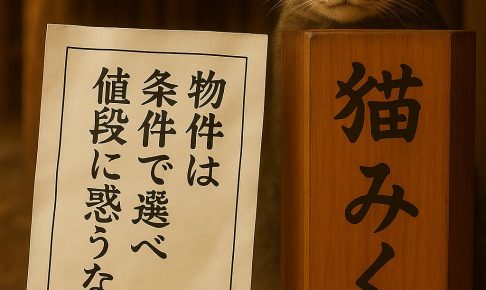 物件は
条件で選べ
値段に惑うな
猫みく